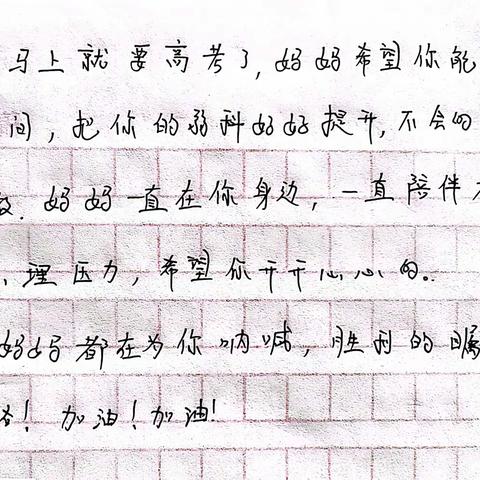 马上就要高考了,妈妈希望你能
间,把你的弱科好好提升,不会的
妈妈一直在你身边,一直陪伴
、理压力,希望你开开心心的..
妈妈都在为你呐喊,胜利的曙
!加油!加油!